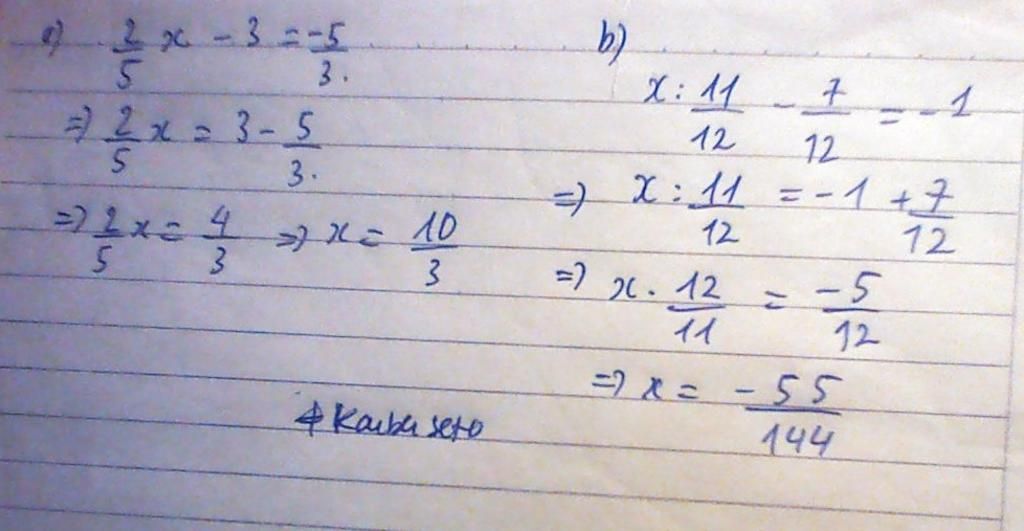 a) 2/5 x - 3 = -5/3.
=> 2/5 x = 3 - 5/3.
=> 2/5 x = 4/3 => x = 10/3
b)
x : 11/12 - 7/12 = -1
=> x : 11/12 = -1 + 7/12
=> x . 12/11 = -5/12
=> x = -55/144